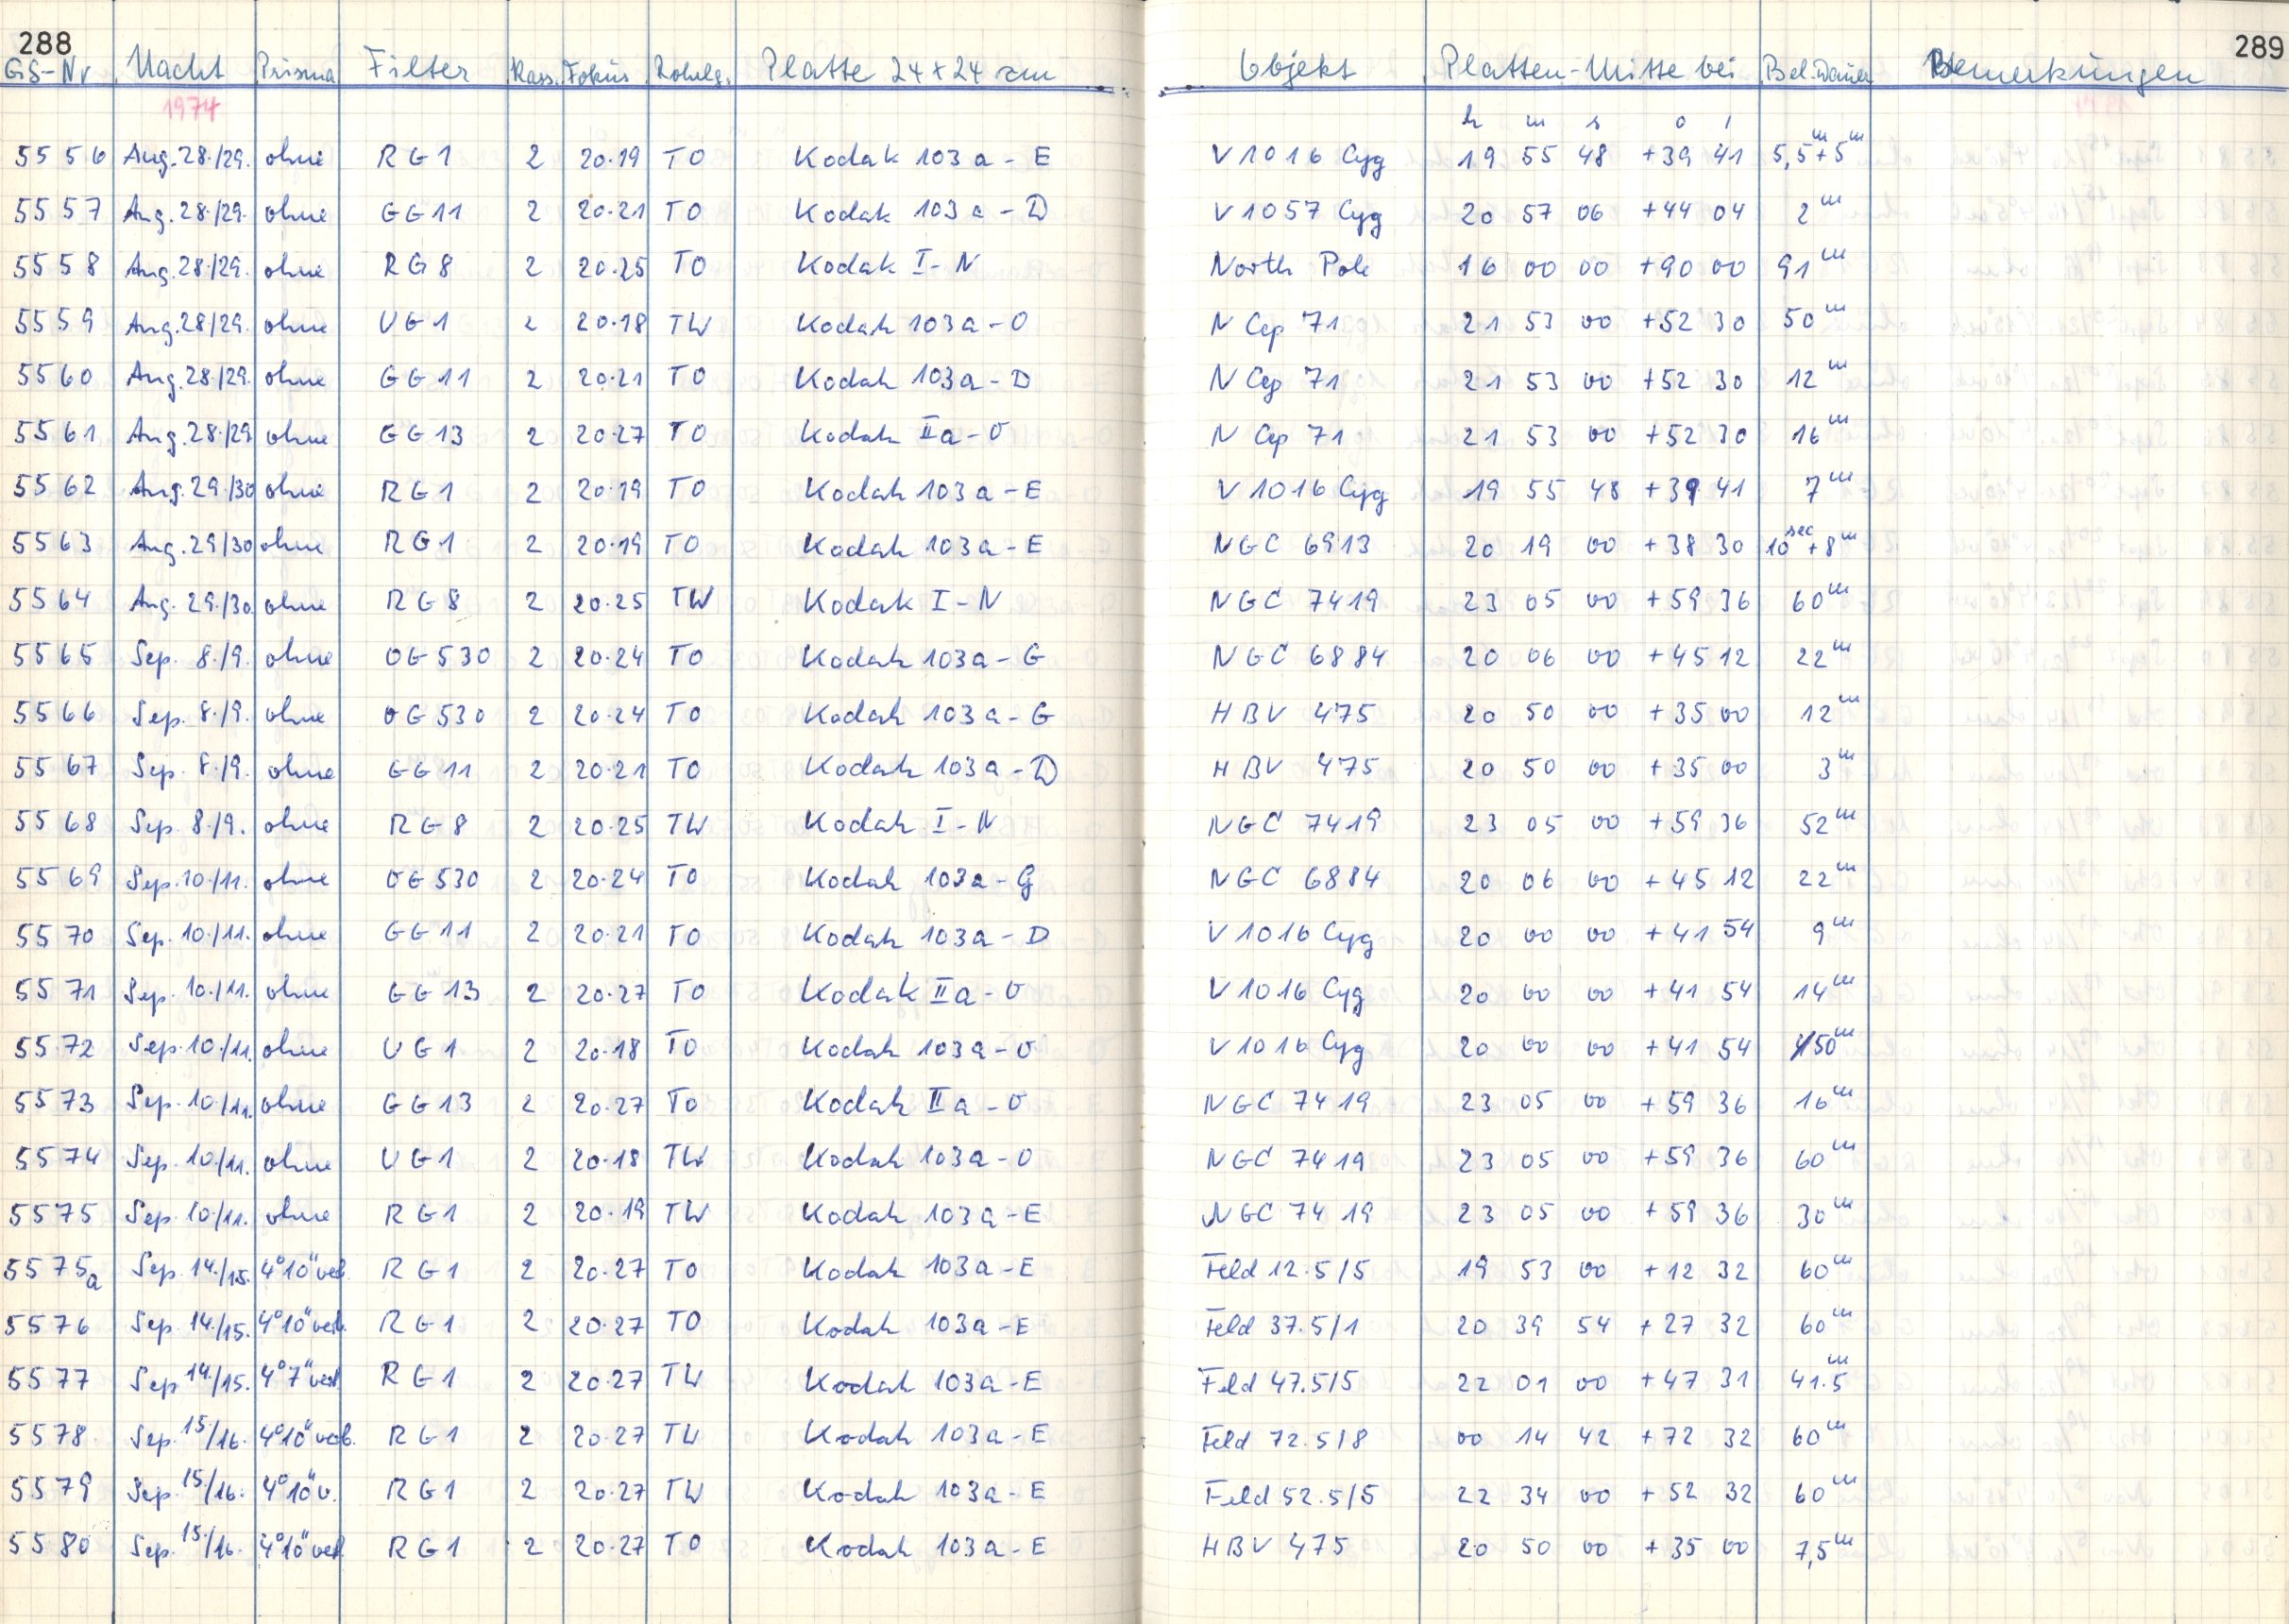 288 289
GS-Nr Nacht Prisma Filter Kass. Fokus Rohrlg. Platte 24x24 cm Objekt Platten-Mitte bei Bel.Dauer Bemerkungen
1974
h m s o '
5556 Aug.28./29. ohne RG1 2 20.19 TO Kodak 103a-E V1016 Cyg 19 55 48 +39 41 5,5m+5m
5557 Aug.28./29. ohne GG11 2 20.21 TO Kodak 103a-D V1057 Cyg 20 57 06 +44 04 2m
5558 Aug.28./29. ohne RG8 2 20.25 TO Kodak I-N North Pole 16 00 00 +90 00 91m
5559 Aug.28/29. ohne UG1 2 20.18 TW Kodak 103a-O N Cep 71 21 53 00 +52 30 50m
5560 Aug.28./29. ohne GG11 2 20.21 TO Kodak 103a-D N Cep 71 21 53 00 +52 30 12m
5561 Aug.28./29 ohne GG13 2 20.27 TO Kodak IIa-O N Cep 71 21 53 00 +52 30 16m
5562 Aug.29./30 ohne RG1 2 20.19 TO Kodak 103a-E V1016 Cyg 19 55 48 +39 41 7m
5563 Aug.29/30 ohne RG1 2 20.19 TO Kodak 103a-E NGC 6913 20 19 00 +38 30 10sec+8m
5564 Aug.29./30. ohne RG8 2 20.25 TW Kodak I-N NGC 7419 23 05 00 +59 36 60m
5565 Sep. 8./9. ohne OG530 2 20.24 TO Kodak 103a-G NGC 6884 20 06 00 +45 12 22m
5566 Sep. 8./9. ohne OG530 2 20.24 TO Kodak 103a-G HBV 475 20 50 00 +35 00 12m
5567 Sep. 8./9. ohne GG11 2 20.21 TO Kodak 103a-D HBV 475 20 50 00 +35 00 3m
5568 Sep. 8./9. ohne RG8 2 20.25 TW Kodak I-N NGC 7419 23 05 00 +59 36 52m
5569 Sep.10./11. ohne OG530 2 20.24 TO Kodak 103a-G NGC 6884 20 06 00 +45 12 22m
5570 Sep.10./11. ohne GG11 2 20.21 TO Kodak 103a-D V1016 Cyg 20 00 00 +41 54 9m
5571 Sep.10./11. ohne GG13 2 20.27 TO Kodak IIa-O V1016 Cyg 20 00 00 +41 54 14m
5572 Sep.10./11. ohne UG1 2 20.18 TO Kodak 103a-O V1016 Cyg 20 00 00 +41 54 50m
5573 Sep.10./11. ohne GG13 2 20.27 TO Kodak IIa-O NGC 7419 23 05 00 +59 36 16m
5574 Sep.10./11. ohne UG1 2 20.18 TW Kodak 103a-O NGC 7419 23 05 00 +59 36 60m
5575 Sep.10./11. ohne RG1 2 20.19 TW Kodak 103a-E NGC 7419 23 05 00 +59 36 30m
5575a Sep.14./15. 4°10"verb. RG1 2 20.27 TO Kodak 103a-E Feld 12.5/5 19 53 00 +12 32 60m
5576 Sep.14./15. 4°10"verb. RG1 2 20.27 TO Kodak 103a-E Feld 37.5/1 20 39 54 +27 32 60m
5577 Sep 14./15. 4°7"verb RG1 2 20.27 TW Kodak 103a-E Feld 47.5/5 22 01 00 +47 31 41.5m
5578 Sep.15/16. 4°10"verb. RG1 2 20.27 TW Kodak 103a-E Feld 72.5/8 00 14 42 +72 32 60m
5579 Sep.15/16. 4°10"v. RG1 2 20.27 TW Kodak 103a-E Feld 52.5/5 22 34 00 +52 32 60m
5580 Sep.15./16. 4°10"verb RG1 2 20.27 TO Kodak 103a-E HBV 475 20 50 00 +35 00 7,5m